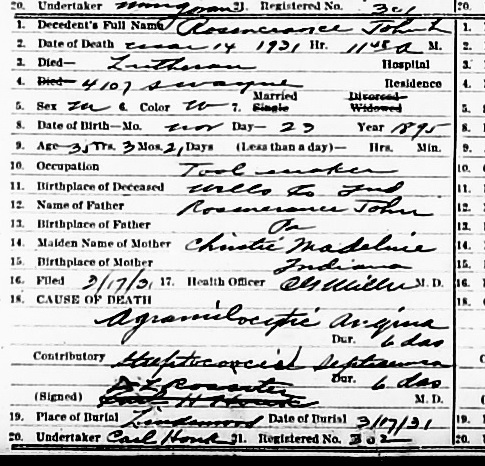 20. Undertaker 21. Registered No. 301 20.
1. Decedent's Full Name Rosmerance John L 1.
2. Date of Death Mar 14 1931 Hr. 11 45 A M. 2.
3. Died— Lutheran Hospital 3.
4. Died— 4107 Swayne Residence 4.
Married Divorced
5. Sex M 6. Color W 7. Single Widowed 5.
8. Date of Birth—Mo. Nov Day— 23 Year 1895 8.
9. Age 35 Yrs. 3 Mos. 21 Days (Less than a day)— Hrs. Min. 9.
10. Occupation Tool maker 10.
11. Birthplace of Deceased Wells Co Ind 11.
12. Name of Father Rosmerance John 12.
13. Birthplace of Father Pa 13.
14. Maiden Name of Mother Christie Madeline 14.
15. Birthplace of Mother Indiana 15.
16. Filed 3/17/31 17. Health Officer Miller M. D. 16.
18. CAUSE OF DEATH 18.
Agranulocytic Angina
Dur. 6 das
Contributory Streptococcial Septicemia
Dur. 6 das
(Signed) M. D.
19. Place of Burial Lindenwood Date of Burial 3/17/31 19.
20. Undertaker Carl Houk 21. Registered No. 302 20.